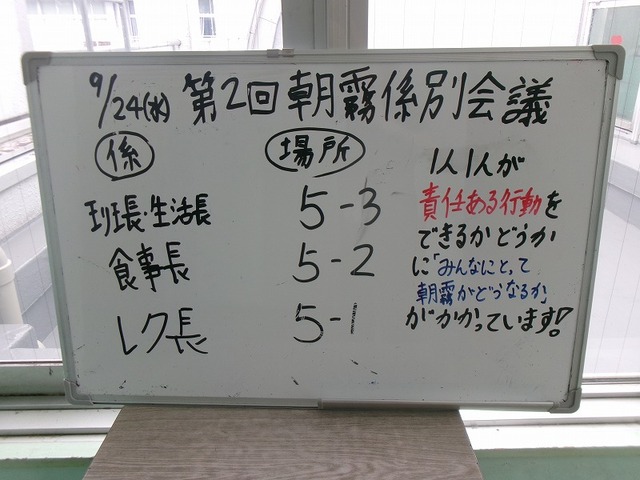 9/24(水) 第2回朝霧係別会議
係 場所
班長・生活長 5-3
食事長 5-2
レク長 5-1
1人1人が
責任ある行動を
できるかどうか
に「みんなにとって
朝霧がどうなるか
がかかっています!